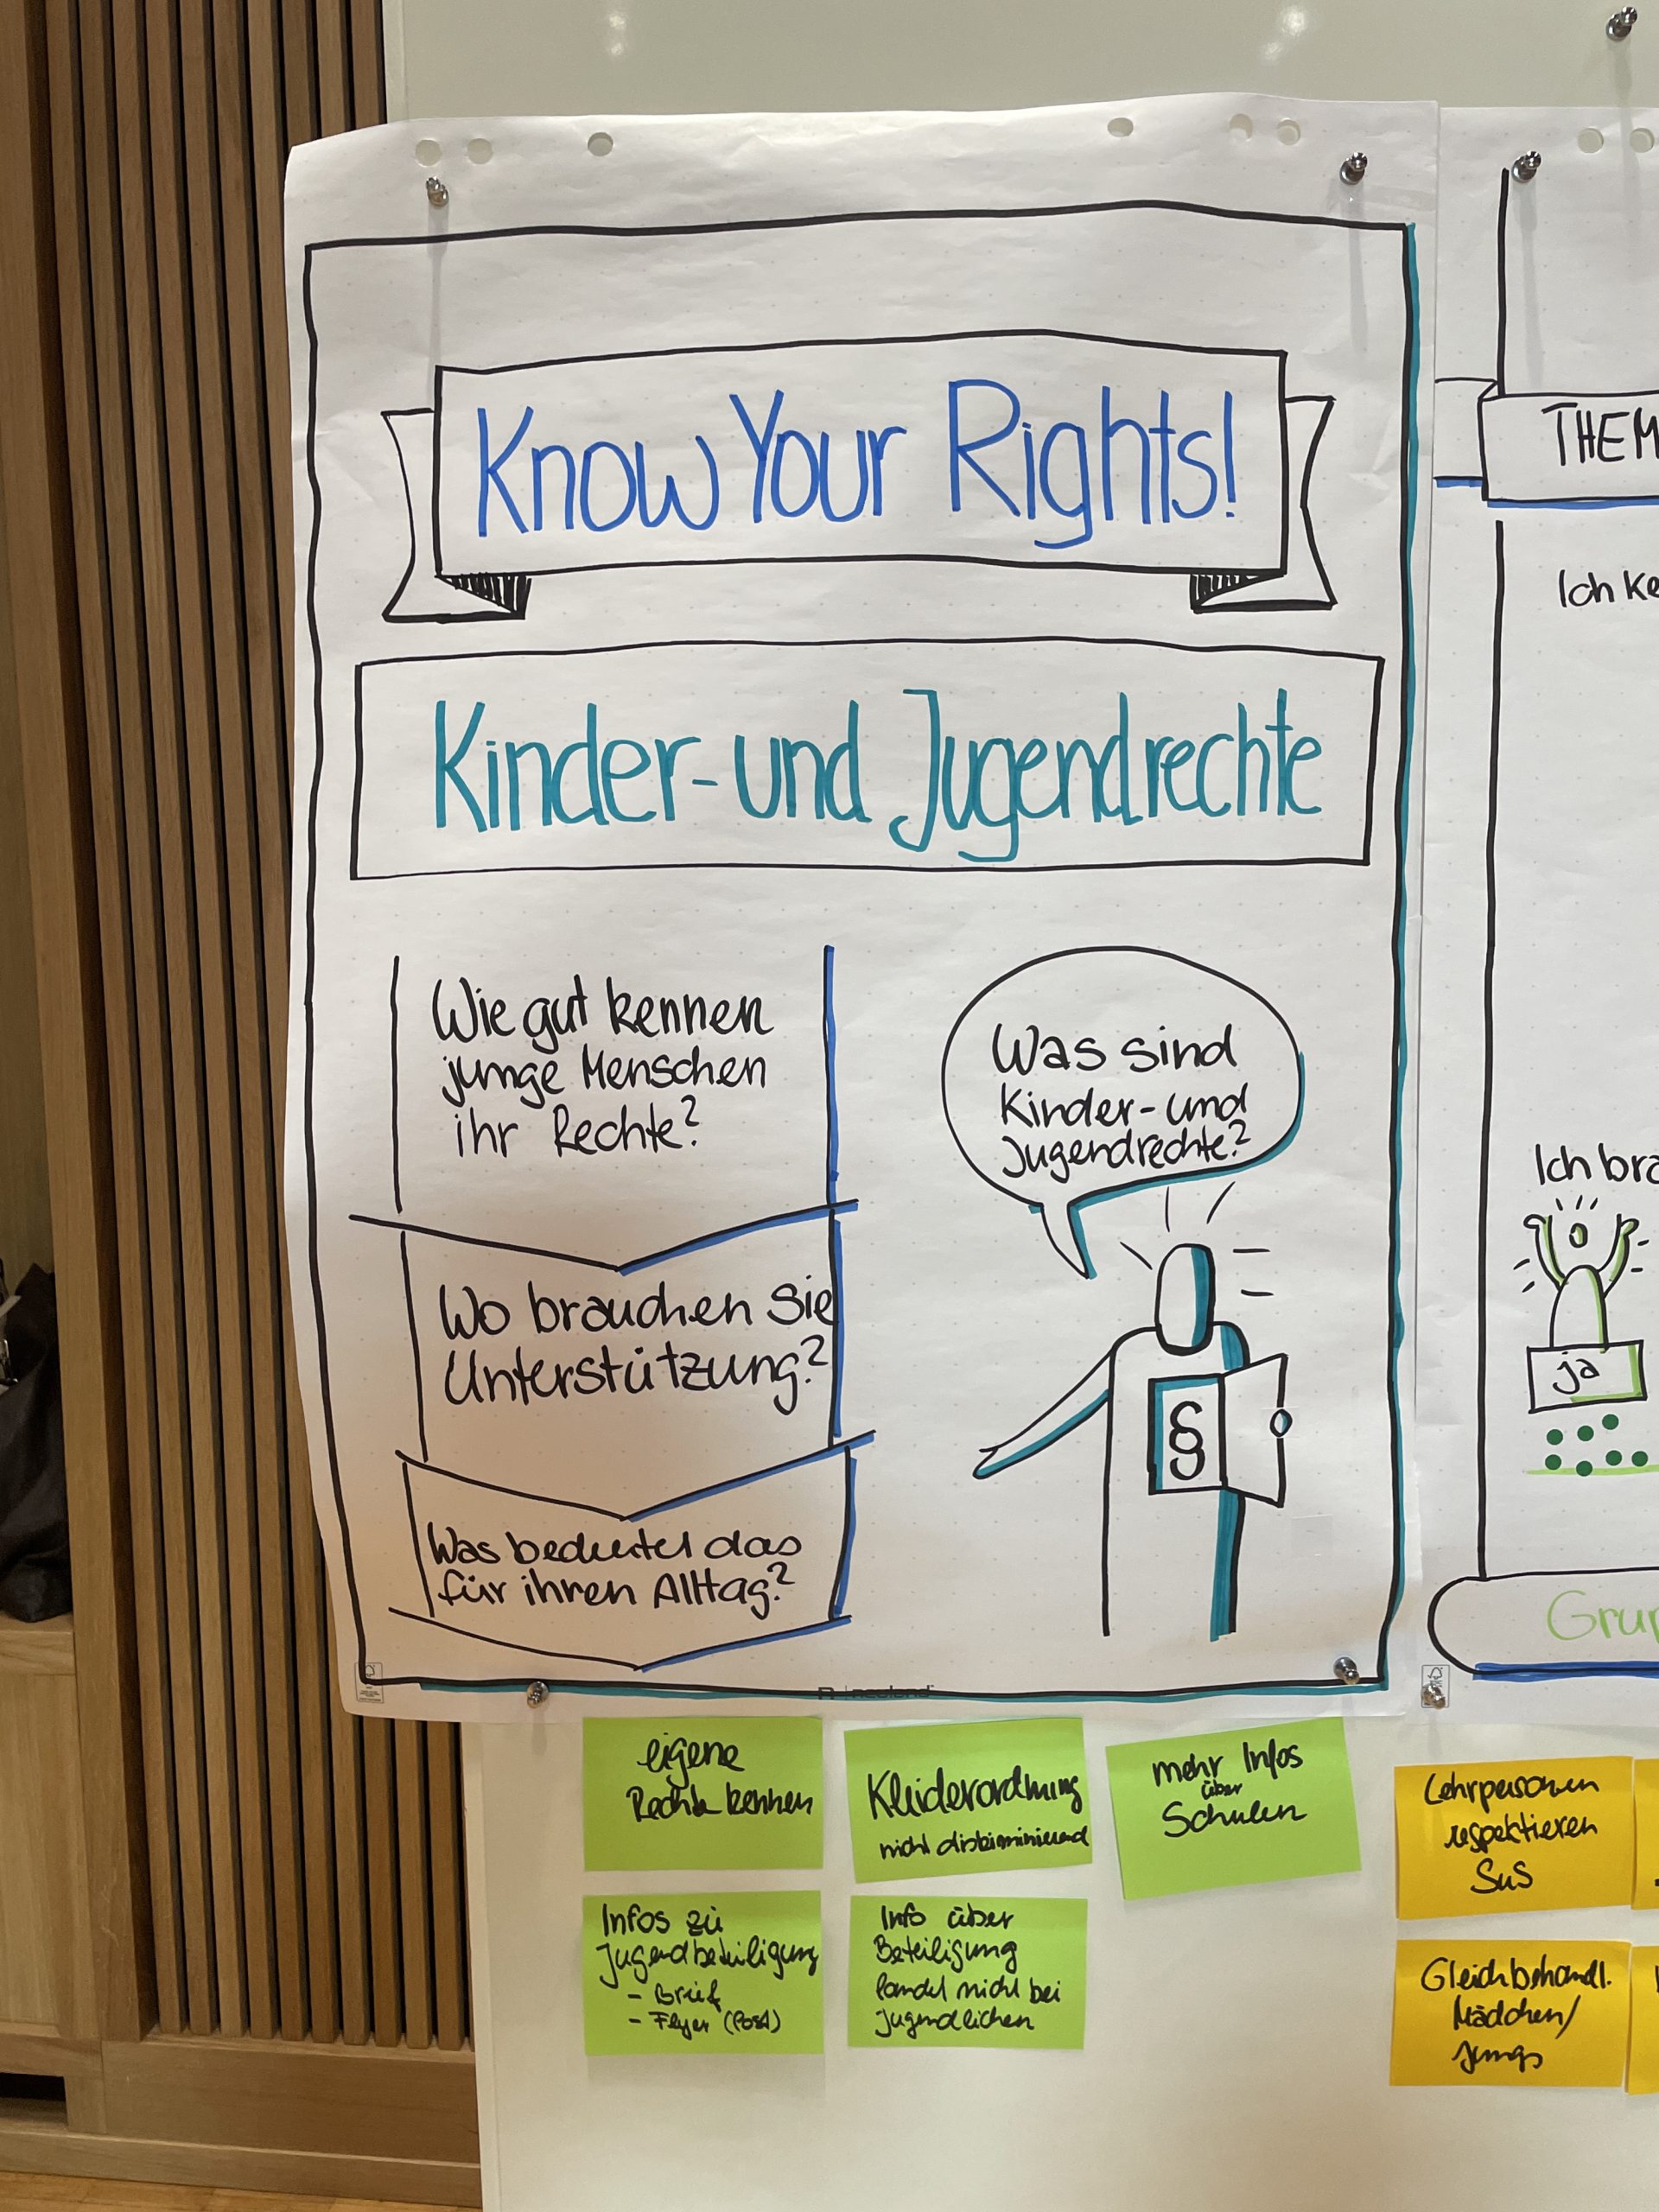 Know Your Rights!
Kinder- und Jugendrechte
Wie gut kennen
junge Menschen
ihr Rechte?
Wo brauchen Sie
Unterstützung?
Was bedeutet das
für ihren Alltag?
Was sind
Kinder- und
Jugendrechte?
§
neoland
eigene
Rechte kennen
Kleiderordnung
nicht diskriminierend
mehr Infos
über
Schulen
Infos zu
Jugendbeteiligung
- Brief
- Flyer (Post)
Info über
Beteiligung
landet nicht bei
Jugendlichen
THEM
Ich ke
Ich bra
ja
Grup
Lehrpersonen
respektieren
SuS
Gleichbehandl.
Mädchen/
Jungs